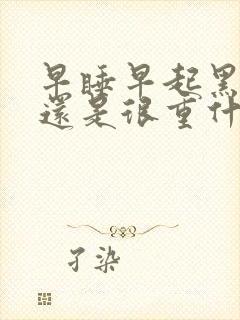 早睡早起黑
還是很重什
孑染